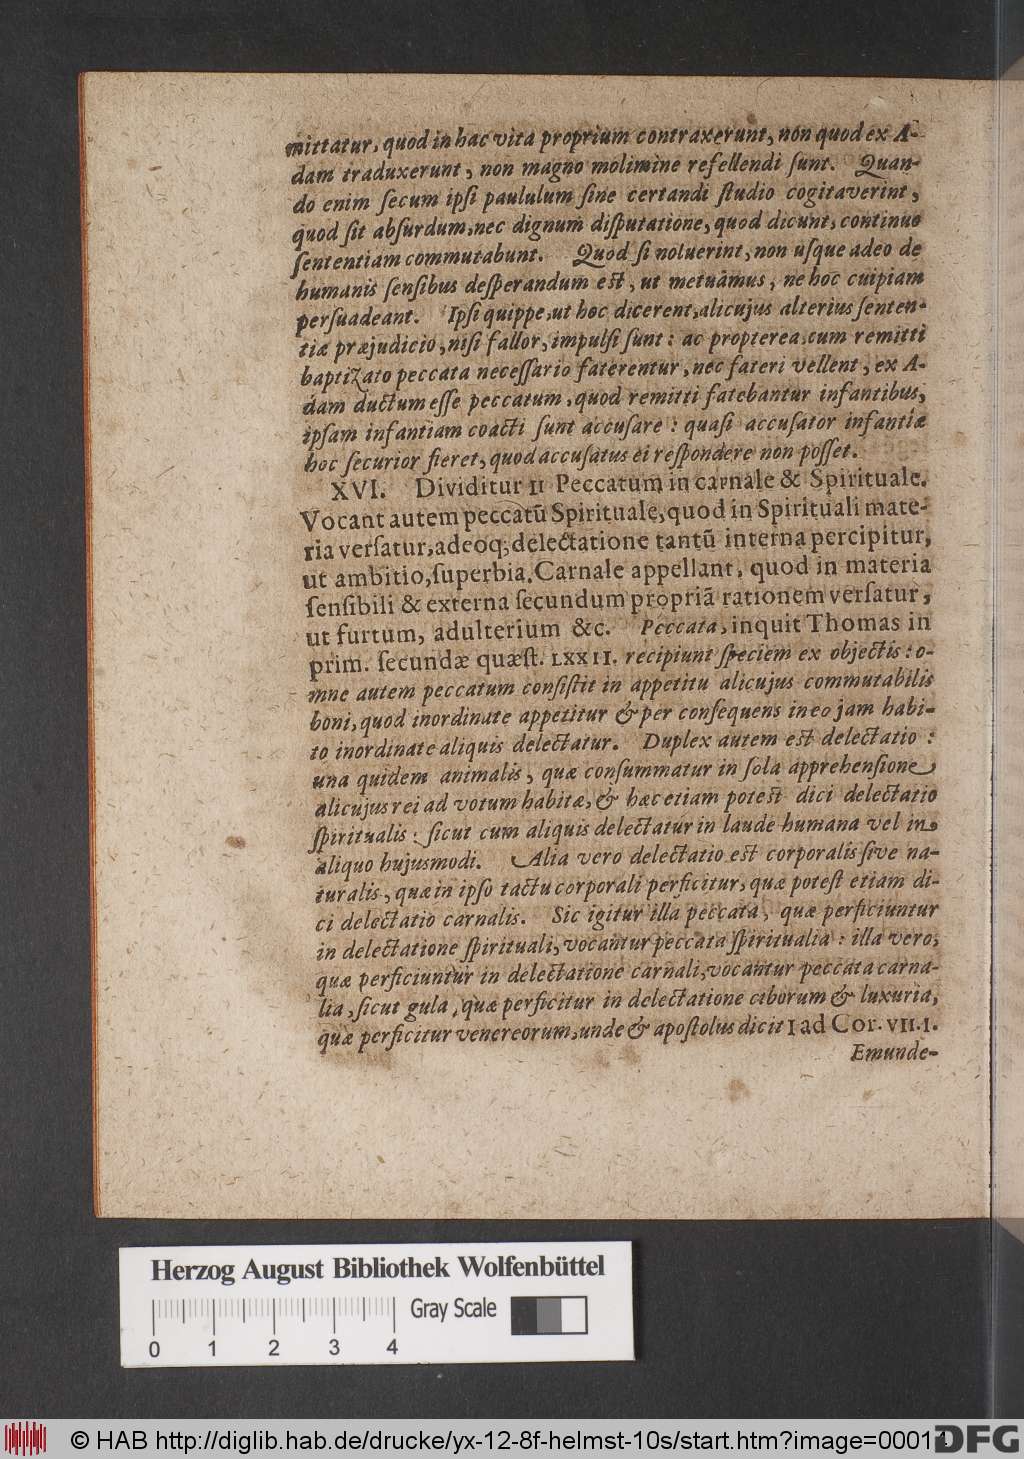 mittatur, quod in hac vita proprium contraxerunt, non quod ex A-
dam traduxerunt, non magno molimine refellendi ſunt. Quan-
do enim ſecum ipſi paululum ſine certandi ſtudio cogitaverint,
quod ſit abſurdum, nec dignum diſputatione, quod dicunt, continuo
ſententiam commutabunt. Quod ſi noluerint, non uſque adeo de
humanis ſenſibus deſperandum eſt, ut metuamus, ne hoc cuipiam
perſuadeant. Ipſi quippe, ut hoc dicerent, alicujus alterius ſenten-
tiæ præjudicio, niſi fallor, impulſi ſunt: ac propterea, cum remitti
baptizato peccata neceſſario faterentur, nec fateri vellent, ex A-
dam ductum eſſe peccatum, quod remitti fatebantur infantibus,
ipſam infantiam coacti ſunt accuſare: quaſi accuſator infantiæ
hoc ſecurior fieret, quod accuſatus ei reſpondere non poſſet.
XVI. Dividitur 11 Peccatum in carnale & Spirituale.
Vocant autem peccatū Spirituale, quod in Spirituali mate-
ria verſatur, adeoq; delectatione tantū interna percipitur,
ut ambitio, ſuperbia. Carnale appellant, quod in materia
ſenſibili & externa ſecundum propriā rationem verſatur,
ut furtum, adulterium &c. Peccata, inquit Thomas in
prim. ſecundæ quæſt. LXXII. recipiunt ſpeciem ex objectis: o-
mne autem peccatum conſiſtit in appetitu alicujus commutabilis
boni, quod inordinate appetitur & per conſequens in eo jam habi-
to inordinate aliquis delectatur. Duplex autem eſt delectatio:
una quidem animalis, quæ conſummatur in ſola apprehenſione
alicujus rei ad votum habitæ, & hæc etiam poteſt dici delectatio
ſpiritualis: ſicut cum aliquis delectatur in laude humana vel in
aliquo hujusmodi. Alia vero delectatio eſt corporalis ſive na-
turalis, quæ in ipſo tactu corporali perficitur, quæ poteſt etiam di-
ci delectatio carnalis. Sic igitur illa peccata, quæ perficiuntur
in delectatione ſpirituali, vocantur peccata ſpiritualia: illa vero,
quæ perficiuntur in delectatione carnali, vocantur peccata carna-
lia, ſicut gula, quæ perficitur in delectatione ciborum & luxuria,
quæ perficitur venereorum, unde & apoſtolus dicit I ad Cor. VII. I.
Emunde-
Herzog August Bibliothek Wolfenbüttel
Gray Scale
0 1 2 3 4
© HAB http://diglib.hab.de/drucke/yx-12-8f-helmst-10s/start.htm?image=00014
DFG